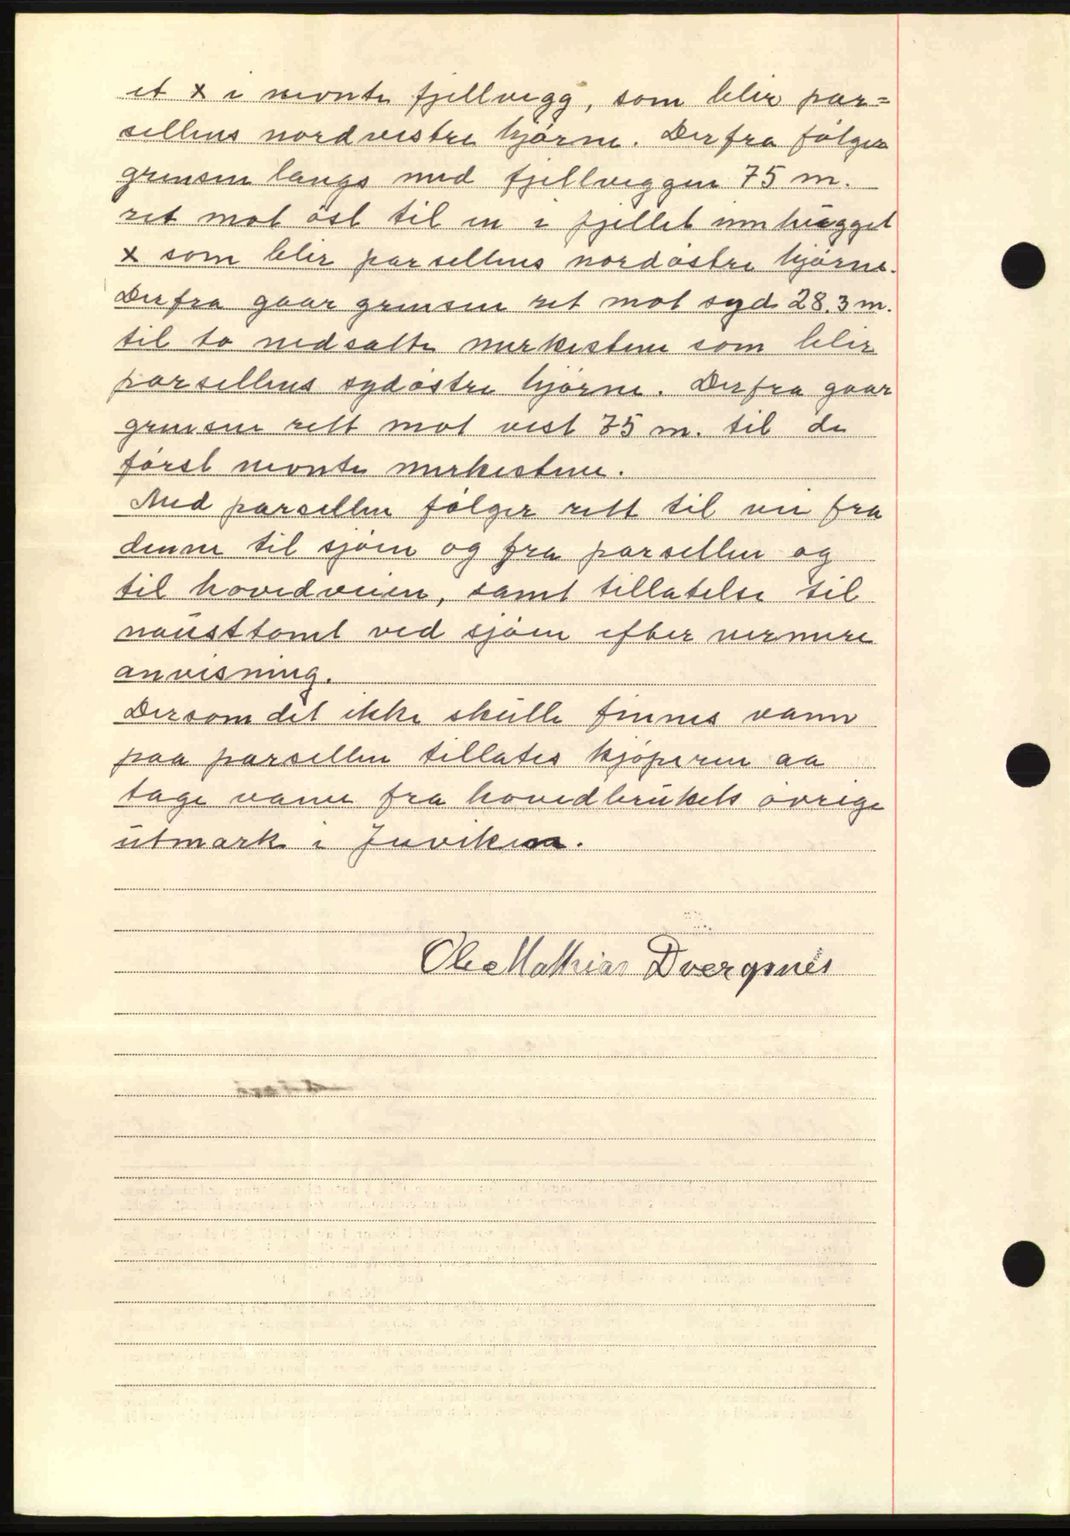 et x i nevnte fjellvegg, som blir par=
sellens nordvestre hjørne. Derfra følger
grensen langs med fjellveggen 75 m.
ret mot øst til en i fjellet innhugget
x som blir parsellens nordøstre hjørne.
Derfra gaar grensen ret mot syd 28.3 m.
til to nedsatte merkestene som blir
parsellens sydøstre hjørne. Derfra gaar
grensen rett mot vest 75 m. til de
først nevnte merkestene.
Med parsellen følger rett til vei fra
denne til sjøen og fra parsellen og
til hovedveien, samt tillatelse til
nausttomt ved sjøen efter nermere
anvisning.
Dersom det ikke skulle finnes vann
paa parsellen tillates kjøperen aa
tage vann fra hovedbrukets øvrige
utmark i Juviken.
Ole Mathias Dvergsnes